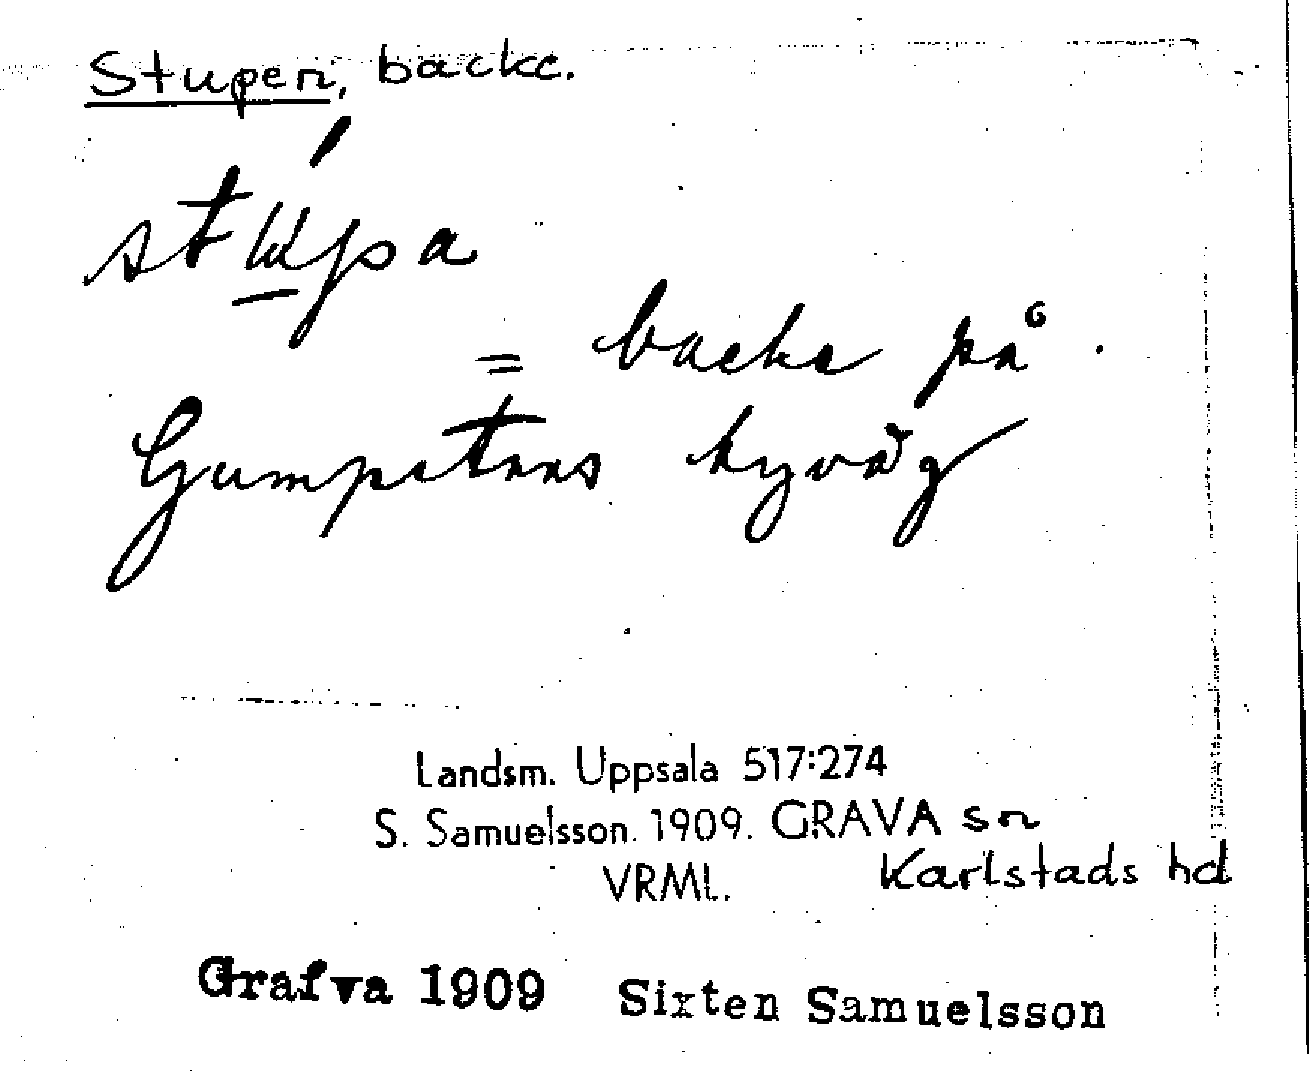 Stupen, backe.
stúpa
= backe på
Gumpetans byväg
Landsm. Uppsala 517:274
S. Samuelsson. 1909. GRAVA sn
VRML. Karlstads hd
Grafva 1909 Sixten Samuelsson